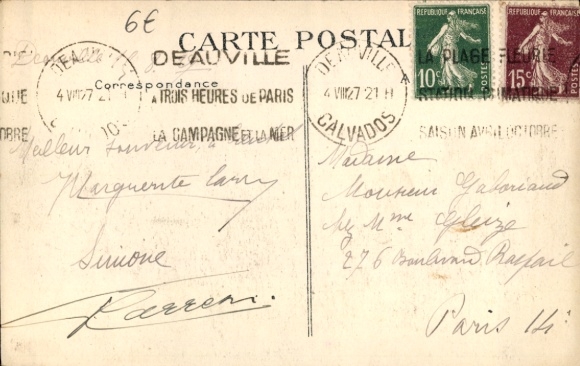 6€
CARTE POSTALE
Correspondance
DEAUVILLE
4 VIII 27 21 H
DEAUVILLE
A TROIS HEURES DE PARIS
LA CAMPAGNE ET LA MER
DEAUVILLE
4 VIII 27 21 H
CALVADOS
LA PLAGE FLEURIE
STATION CLIMATIQUE
SAISON AVRIL OCTOBRE
REPUBLIQUE FRANÇAISE
10c
POSTES
REPUBLIQUE FRANÇAISE
15c
POSTES
Meilleur souvenir,
Marguerite
Simone
Madame
Monsieur Gaboriaud
chez Mme Gleize
276 Boulevard Raspail
Paris 14